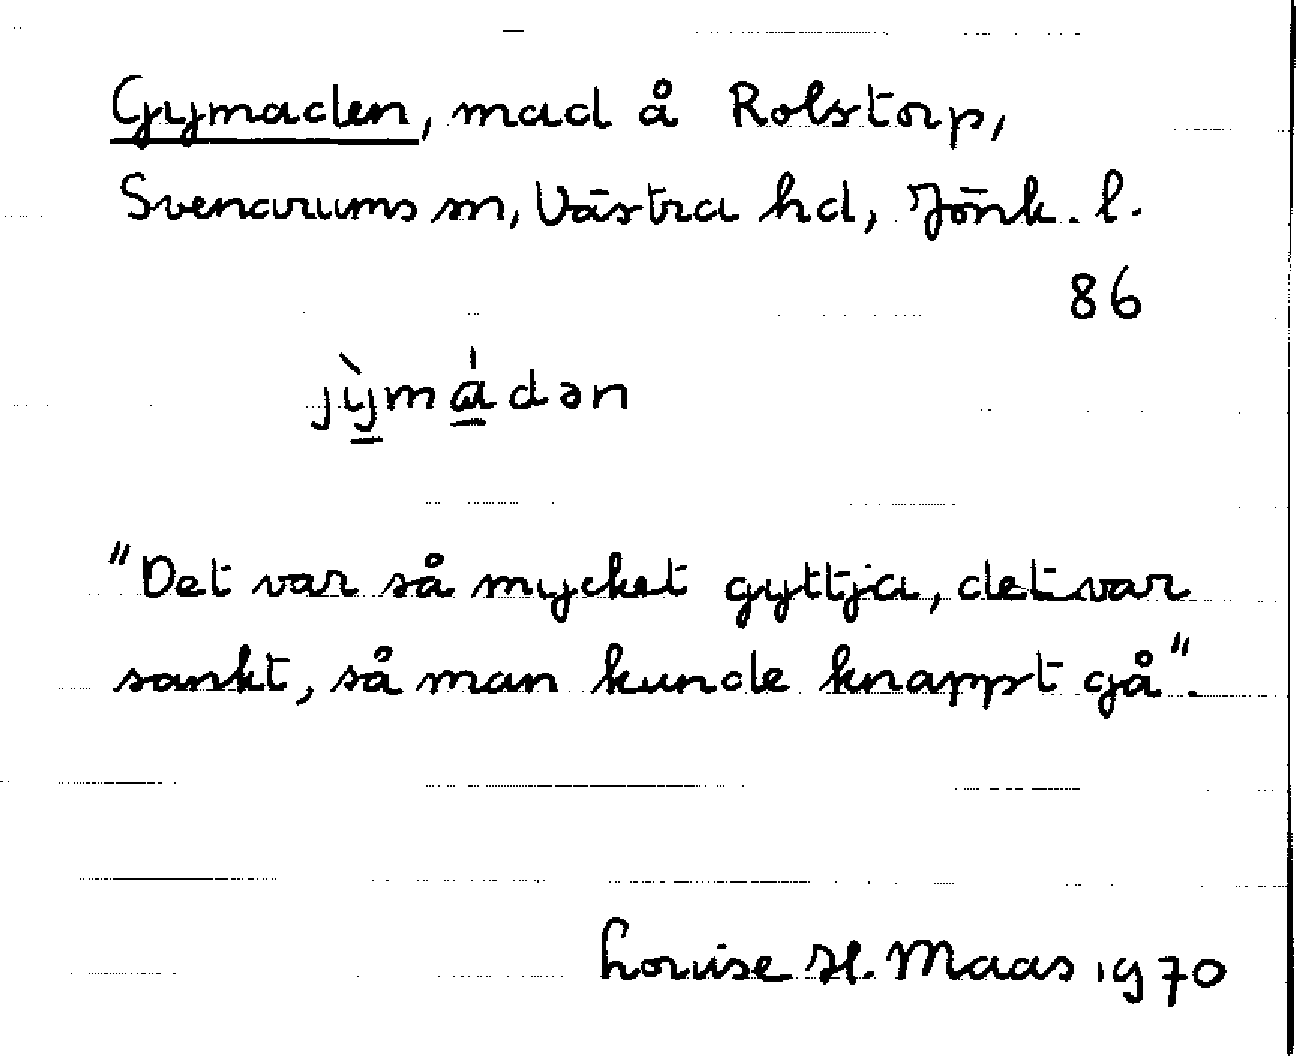 Gymaden, mad å Rolstorp,
Svenarums sn, Västra hd, Jönk. l.
86
jỳ̱má̱dən
"Det var så mycket gyttja, det var
sankt, så man kunde knappt gå".
Louise H. Maas 1970